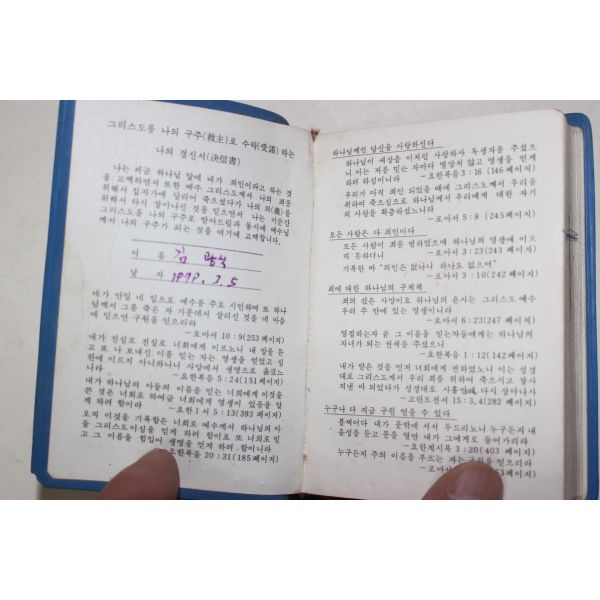 그리스도를 나의 구주(救主)로 수락(受諾)하는
나의 결신서(決信書)
나는 지금 하나님 앞에 내가 죄인이라고 하는 것
을 고백하면서 또한 예수 그리스도께서 나의 죄를
위해서 십자가에 달리어 죽으셨다가 나의 의(義)를
위해서 다시 살아나신 것을 믿으면서 나는 이순간
그리스도를 나의 구주로 받아드림과 동시에 예수님
께서 나의 구주가 되는 것을 여기에 고백합니다.
이 름 김
날 자 1979. 7. 5
네가 만일 네 입으로 예수를 주로 시인하며 또 하나
님께서 그를 죽은 자 가운데서 살리신 것을 네 마음
에 믿으면 구원을 얻으리라
―로마서 10:9(253페이지)
내가 진실로 진실로 너희에게 이르노니 내 말을 듣
고 또 나 보내신 이를 믿는 자는 영생을 얻었고 심
판에 이르지 아니하나니 사망에서 생명으로 옮겼느
니라 ―요한복음 5:24(151페이지)
내가 하나님의 아들의 이름을 믿는 너희에게 이것을
쓴 것은 너희로 하여금 너희에게 영생이 있음을 알
게 하려 함이라 ―요한1서 5:13(393페이지)
오직 이것을 기록함은 너희로 예수께서 하나님의 아
들 그리스도이심을 믿게 하려 함이요 또 너희로 믿
고 그 이름을 힘입어 생명을 얻게 하려 함이니라
―요한복음 20:31(185페이지)
하나님께선 당신을 사랑하신다
하나님이 세상을 이처럼 사랑하사 독생자를 주셨으
니 이는 저를 믿는 자마다 멸망치 않고 영생을 얻게
하려 하심이니라 ―요한복음 3:16 (146페이지)
우리가 아직 죄인 되었을 때에 그리스도께서 우리를
위하여 죽으심으로 하나님께서 우리에게 대한 자기
의 사랑을 확증하셨느니라
―로마서 5:8 (245페이지)
모든 사람은 다 죄인이다
모든 사람이 죄를 범하였으매 하나님의 영광에 이르
지 못하더니 ―로마서 3:23(243 페이지)
기록한 바 "의인은 없나니 하나도 없으며"
―로마서 3:10(242 페이지)
죄에 대한 하나님의 구제책
죄의 삯은 사망이요 하나님의 은사는 그리스도 예수
우리 주 안에 있는 영생이니라
―로마서 6:23(247 페이지)
영접하는자 곧 그 이름을 믿는자들에게는 하나님의
자녀가 되는 권세를 주셨으니
―요한복음 1:12(142 페이지)
내가 받은 것을 먼저 너희에게 전하였노니 이는 성경
대로 그리스도께서 우리 죄를 위하여 죽으시고 장사
지낸 바 되었다가 성경대로 사흘만에 다시 살아나사
―고린도전서 15:3,4(282 페이지)
누구나 다 지금 구원 얻을 수 있다
볼찌어다 내가 문밖에 서서 두드리노니 누구든지 내
음성을 듣고 문을 열면 내가 그에게로 들어가리라
―요한계시록 3:20(403 페이지)
누구든지 주의 이름을 부르는 자는 구원을 얻으리라
―로마서